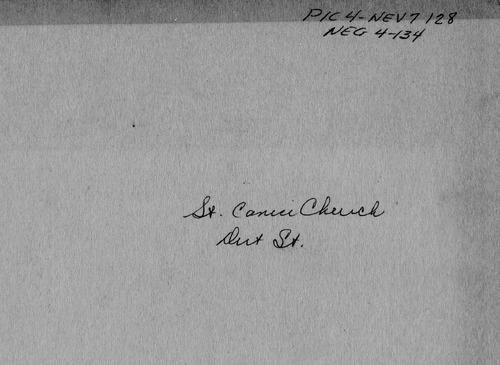 PIC 4-NEV7 128
NEG 4-134
St. Canice Church
Dut St.